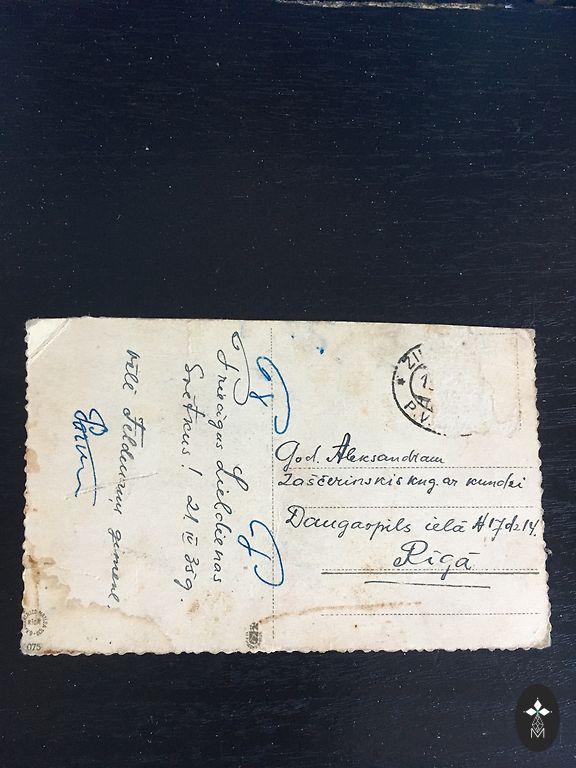 Priecīgus Lieldienas
Svētkus! 21 IV 35 g.
vēlē Feldmaņu ģimene.
ZI
P.V.
God. Aleksandram
Zaščerinskis kng. ar kundzi
Daugavpils ielā № 17 dz. 14.
Rīgā
RIGA
075
M